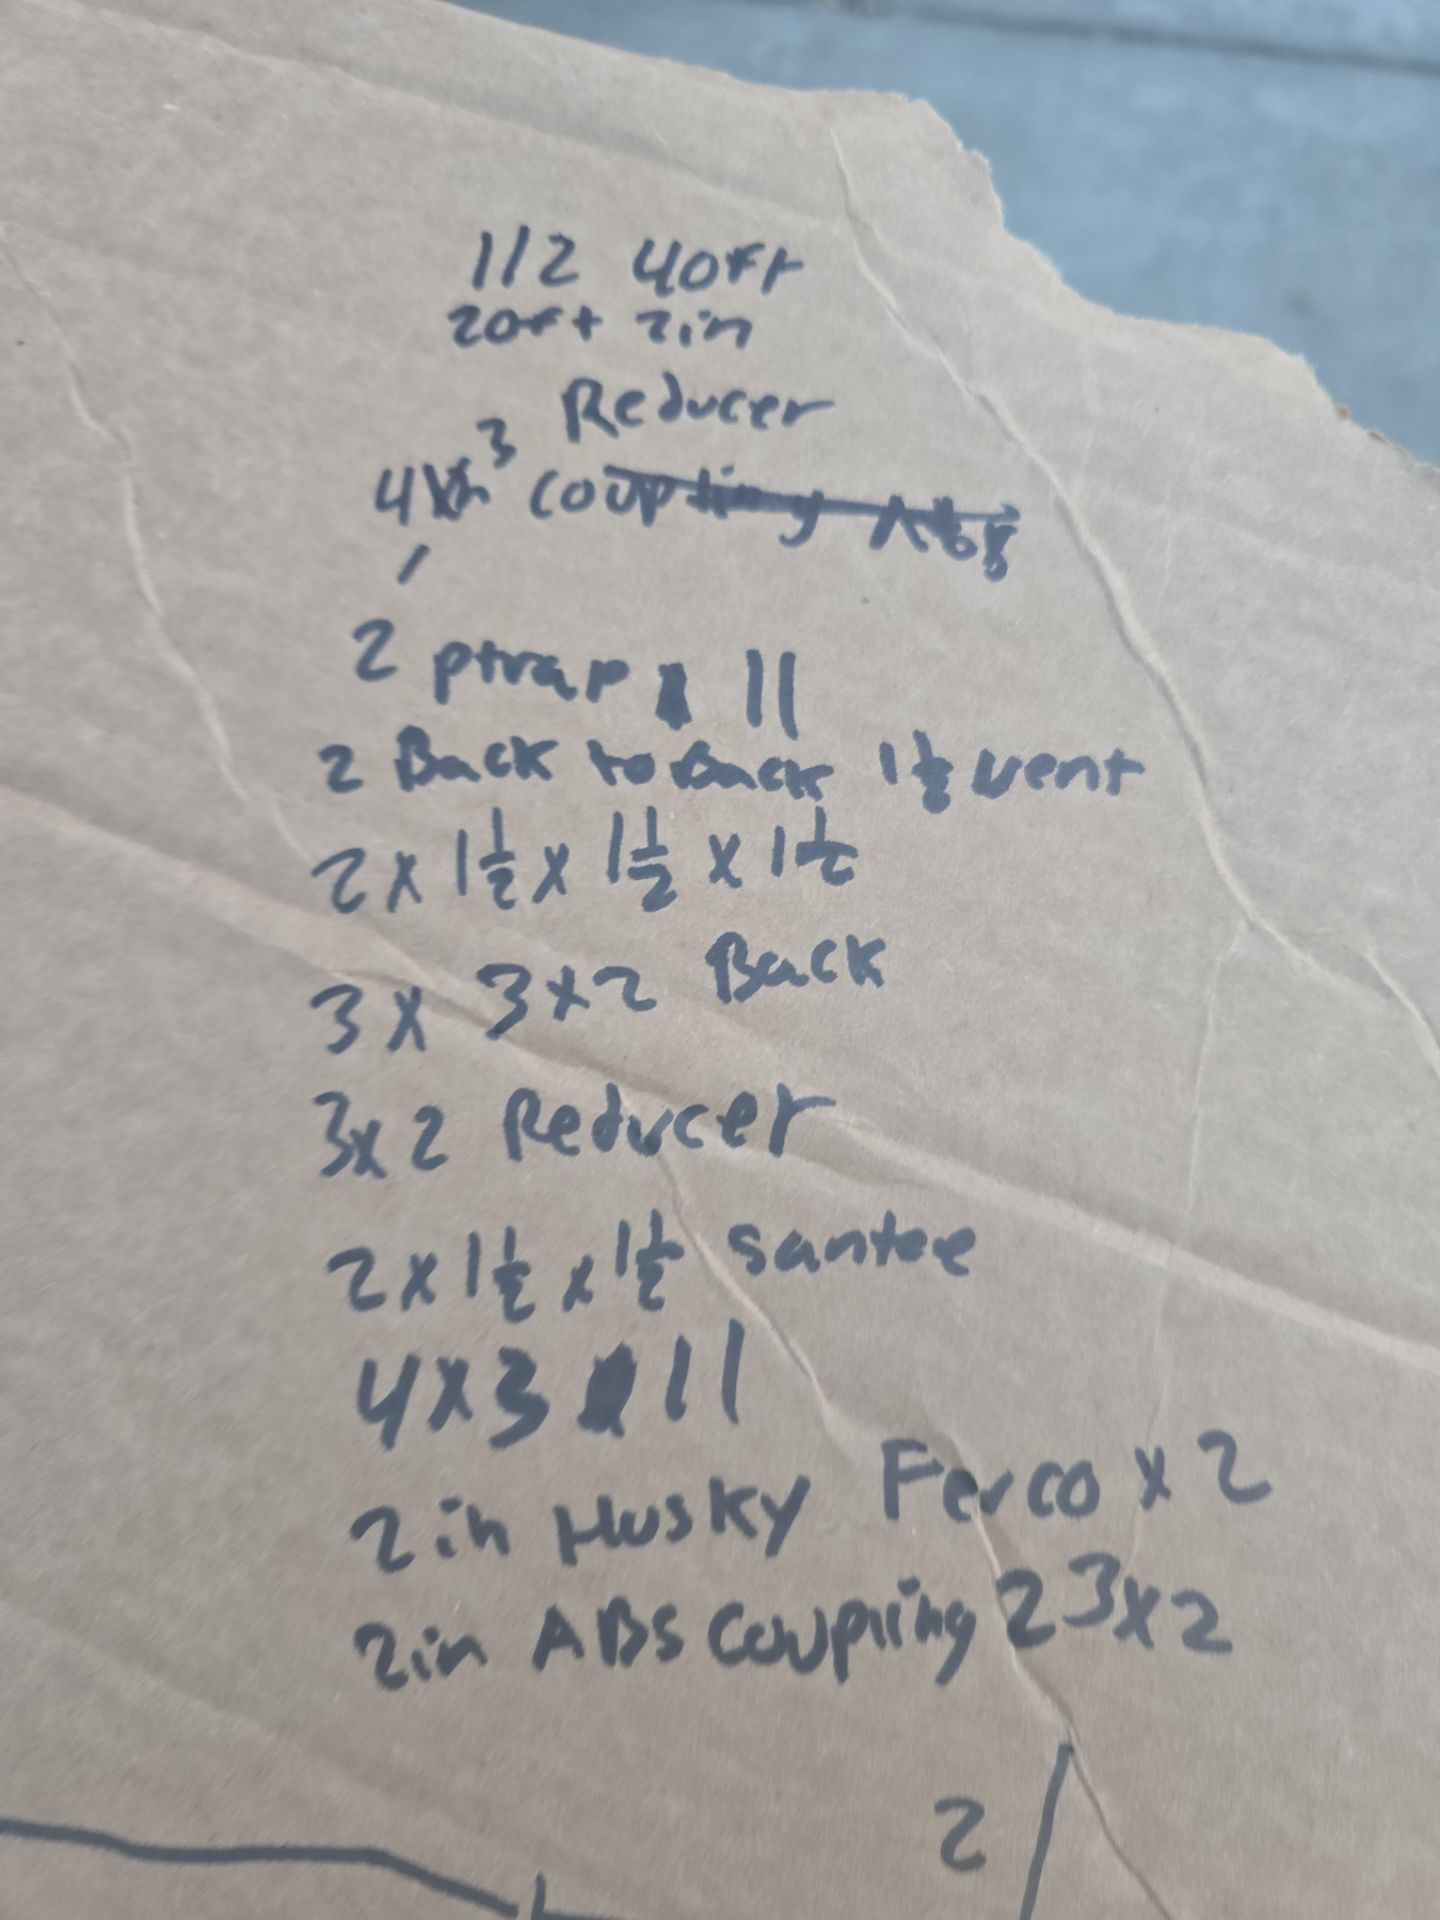 1/2 40ft
20ft 2in
Reducer
4x3 coupling Abs
2 ptrap 11
2 Back to Back 1 1/2 vent
2 x 1 1/2 x 1 1/2 x 1 1/2
3 x 3 x 2 Back
3x2 Reducer
2 x 1 1/2 x 1 1/2 santee
4x3 11
2in Husky Ferco x 2
2in ABS Coupling 2 3x2
2